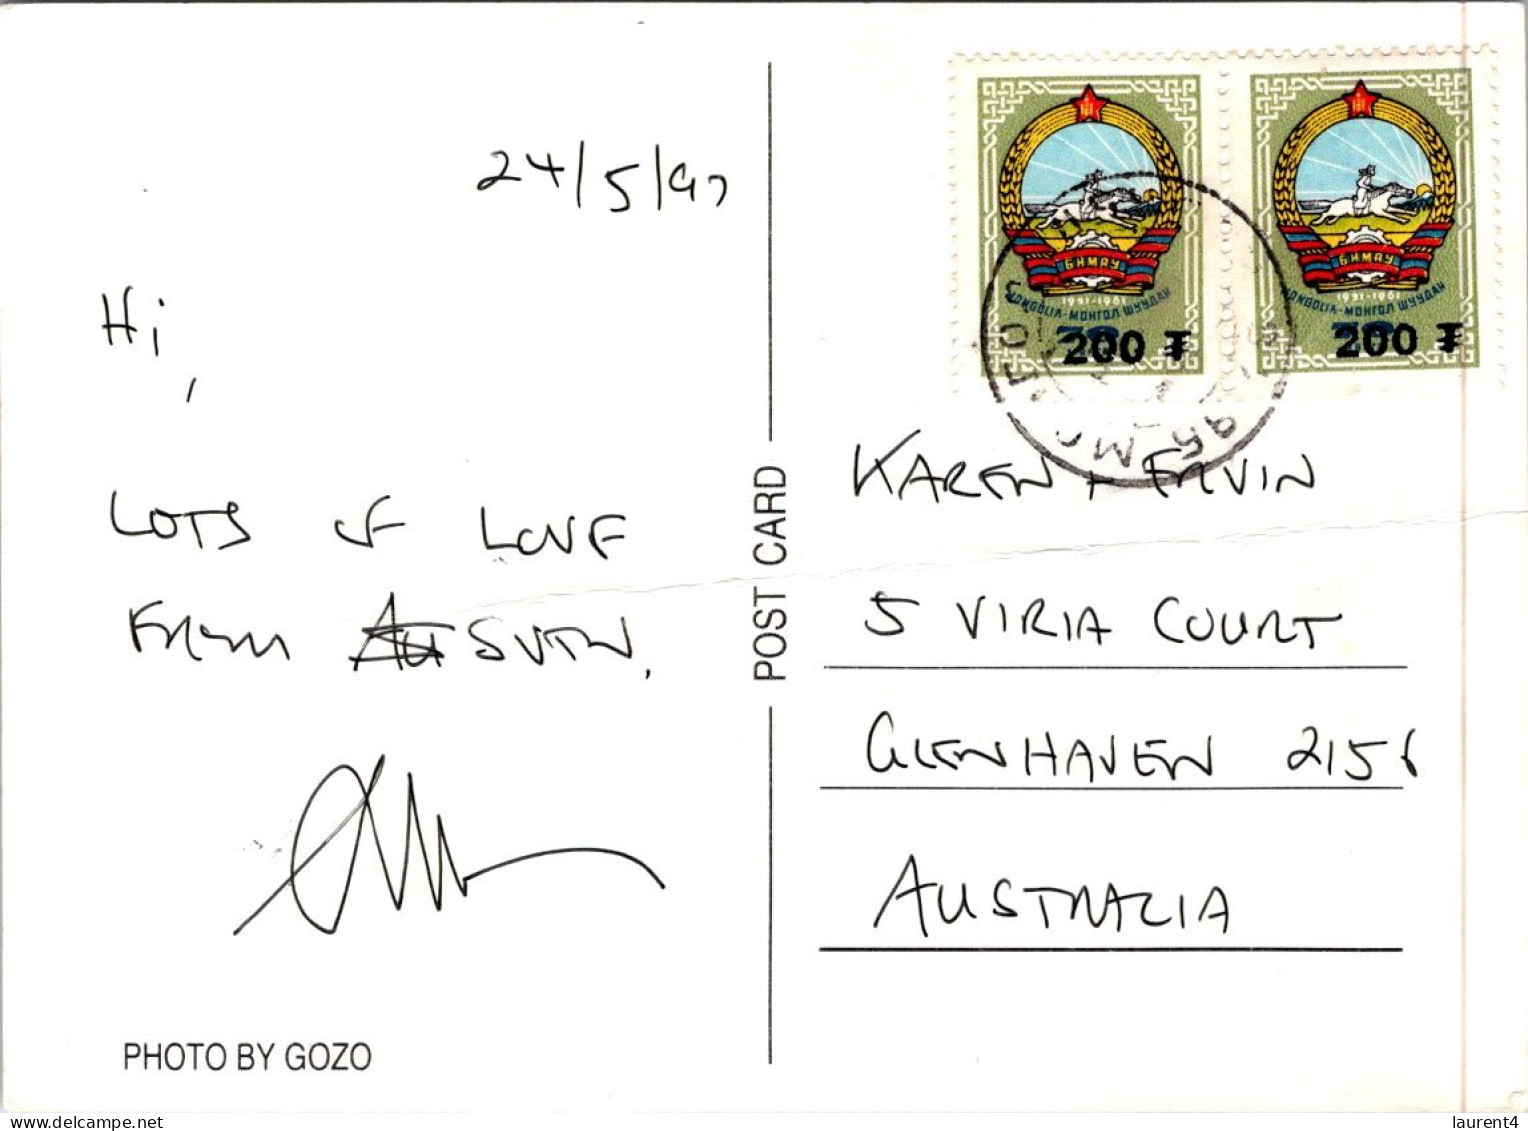 24/5/97
Hi,
LOTS OF LOVE
FROM
PHOTO BY GOZO
POST CARD
БНМАУ
1921-1961
MONGOLIA-МОНГОЛ ШУУДАН
200 ₮
БНМАУ
1921-1961
MONGOLIA-МОНГОЛ ШУУДАН
200 ₮
KAREN + ERVIN
5 VIRIA COURT
GLENHAVEN 2156
AUSTRALIA
laurent4